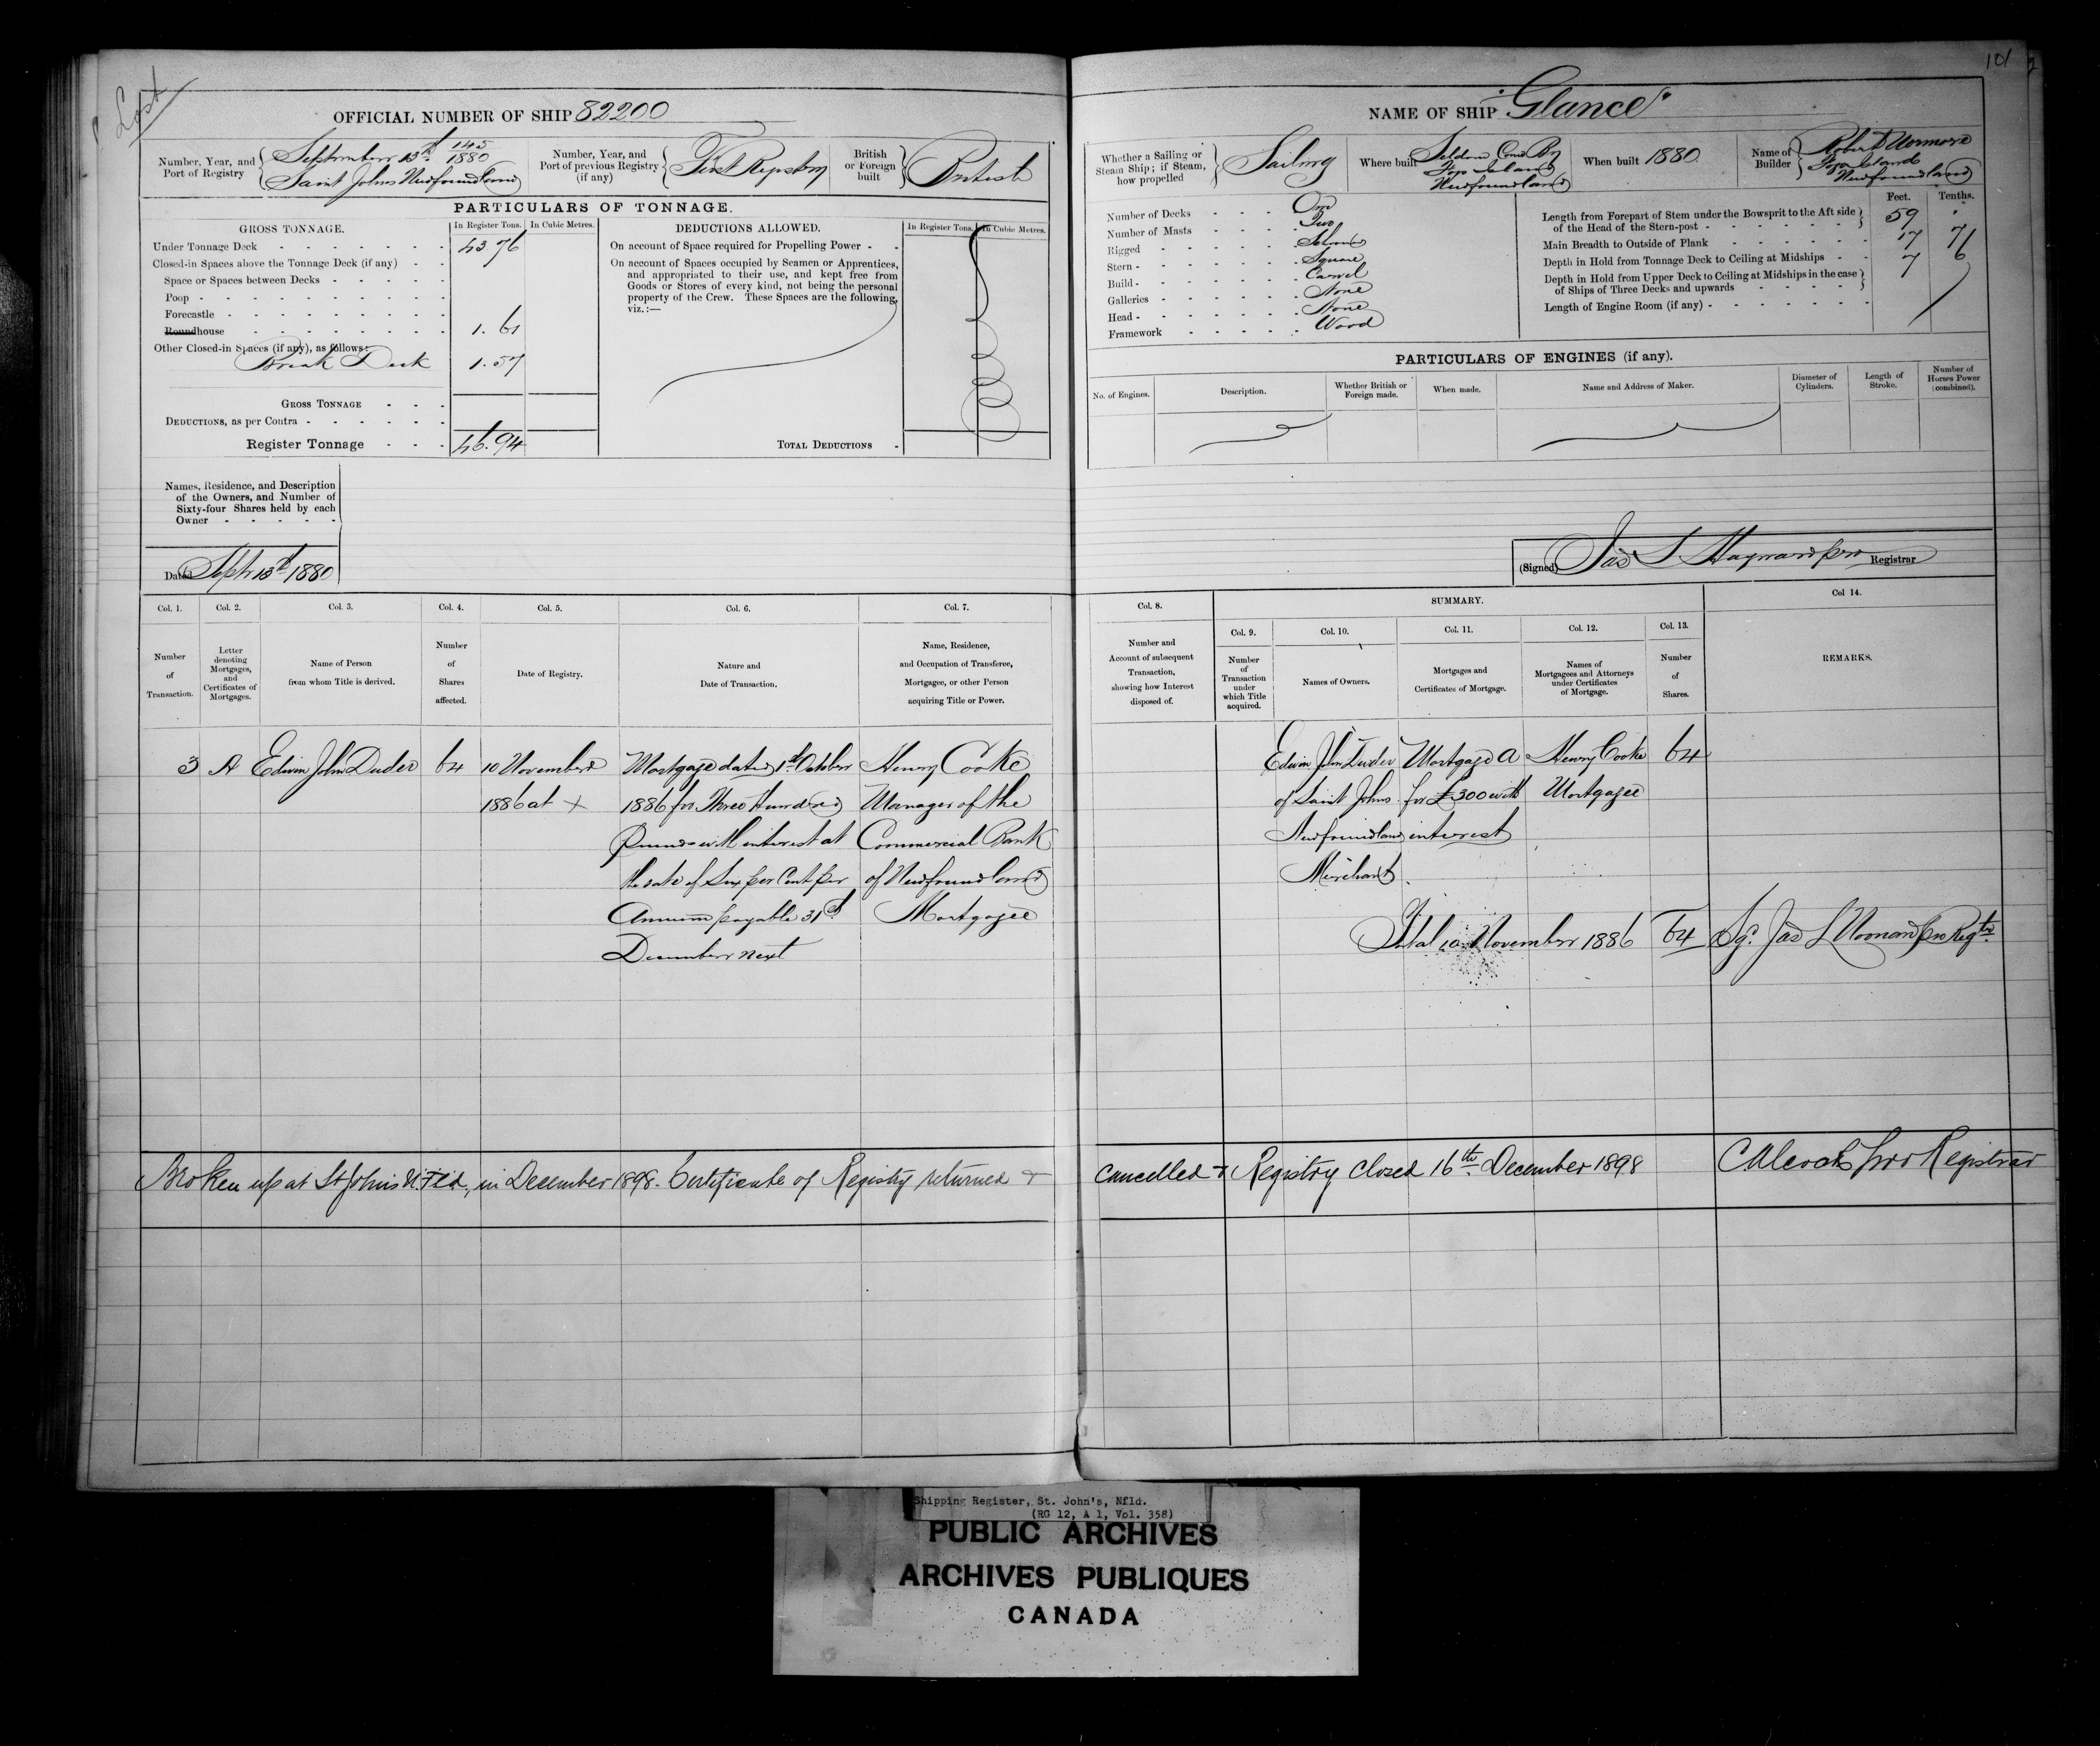 Lost
101
OFFICIAL NUMBER OF SHIP 82200
Number, Year, and Port of Registry
September 13th 145 1880
Saint Johns Newfoundland
Number, Year, and Port of previous Registry (if any)
First Registry
British or Foreign built
British
PARTICULARS OF TONNAGE.
GROSS TONNAGE.
In Register Tons.
In Cubic Metres.
Under Tonnage Deck 43 76
Closed-in Spaces above the Tonnage Deck (if any)
Space or Spaces between Decks
Poop
Forecastle
Roundhouse 1.61
Other Closed-in Spaces (if any), as follows:
Break Deck 1.57
GROSS TONNAGE
DEDUCTIONS, as per Contra
Register Tonnage 46.94
DEDUCTIONS ALLOWED.
In Register Tons.
In Cubic Metres.
On account of Space required for Propelling Power
On account of Spaces occupied by Seamen or Apprentices,
and appropriated to their use, and kept free from
Goods or Stores of every kind, not being the personal
property of the Crew. These Spaces are the following,
viz.:—
TOTAL DEDUCTIONS
Names, Residence, and Description
of the Owners, and Number of
Sixty-four Shares held by each
Owner
Dated Septr 13th 1880
NAME OF SHIP "Glance"
Whether a Sailing or Steam Ship; if Steam, how propelled
Sailing
Where built
Seldom Come By
Fogo Island
Newfoundland
When built 1880
Name of Builder
Robert
Fogo Island
Newfoundland
Number of Decks One
Number of Masts Two
Rigged Schooner
Stern Square
Build Carvel
Galleries None
Head None
Framework Wood
Feet. Tenths.
Length from Forepart of Stem under the Bowsprit to the Aft side
of the Head of the Stern-post 59 .
Main Breadth to Outside of Plank 17 7
Depth in Hold from Tonnage Deck to Ceiling at Midships 7 6
Depth in Hold from Upper Deck to Ceiling at Midships in the case
of Ships of Three Decks and upwards
Length of Engine Room (if any)
PARTICULARS OF ENGINES (if any).
No. of Engines.
Description.
Whether British or Foreign made.
When made.
Name and Address of Maker.
Diameter of Cylinders.
Length of Stroke.
Number of Horses Power (combined).
(Signed) Jas L Hayward pro Registrar
Col. 1. Col. 2. Col. 3. Col. 4. Col. 5. Col. 6. Col. 7.
Number of Transaction.
Letter denoting Mortgages, and Certificates of Mortgages.
Name of Person from whom Title is derived.
Number of Shares affected.
Date of Registry.
Nature and Date of Transaction.
Name, Residence, and Occupation of Transferee, Mortgagee, or other Person acquiring Title or Power.
Col. 8.
Number and Account of subsequent Transaction, showing how Interest disposed of.
SUMMARY.
Col. 9. Col. 10. Col. 11. Col. 12. Col. 13.
Number of Transaction under which Title acquired.
Names of Owners.
Mortgages and Certificates of Mortgage.
Names of Mortgagees and Attorneys under Certificates of Mortgage.
Number of Shares.
Col 14.
REMARKS.
3 A Edwin John Duder 64 10 November Mortgage dated 1st October Henry Cooke
1886 at + 1886 for Three Hundred Manager of the
Pounds with interest at Commercial Bank
the rate of Six per Cent per of Newfoundland
Annum payable 31st Mortgagee
December next
Edwin John Duder Mortgage A Henry Cooke 64
of Saint Johns for £300 with Mortgagee
Newfoundland interest
Merchant
Total 10 November 1886 64 Sgd Jas L Pro Regtr
Broken up at St Johns N.F'ld, in December 1898. Certificate of Registry returned +
cancelled + Registry closed 16th December 1898 pro Registrar
Shipping Register, St. John's, Nfld.
(RG 12, A 1, Vol. 358)
PUBLIC ARCHIVES
ARCHIVES PUBLIQUES
CANADA